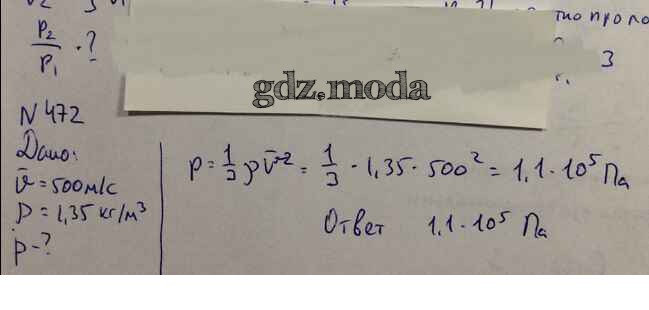 P₂/P₁ - ?
3
gdz.moda
N 472
Дано:
v̄ = 500 м/с
ρ = 1,35 кг/м³
p - ?
p = 1/3 ρv̄² = 1/3 · 1,35 · 500² = 1,1 · 10⁵ Па
Ответ 1,1 · 10⁵ Па